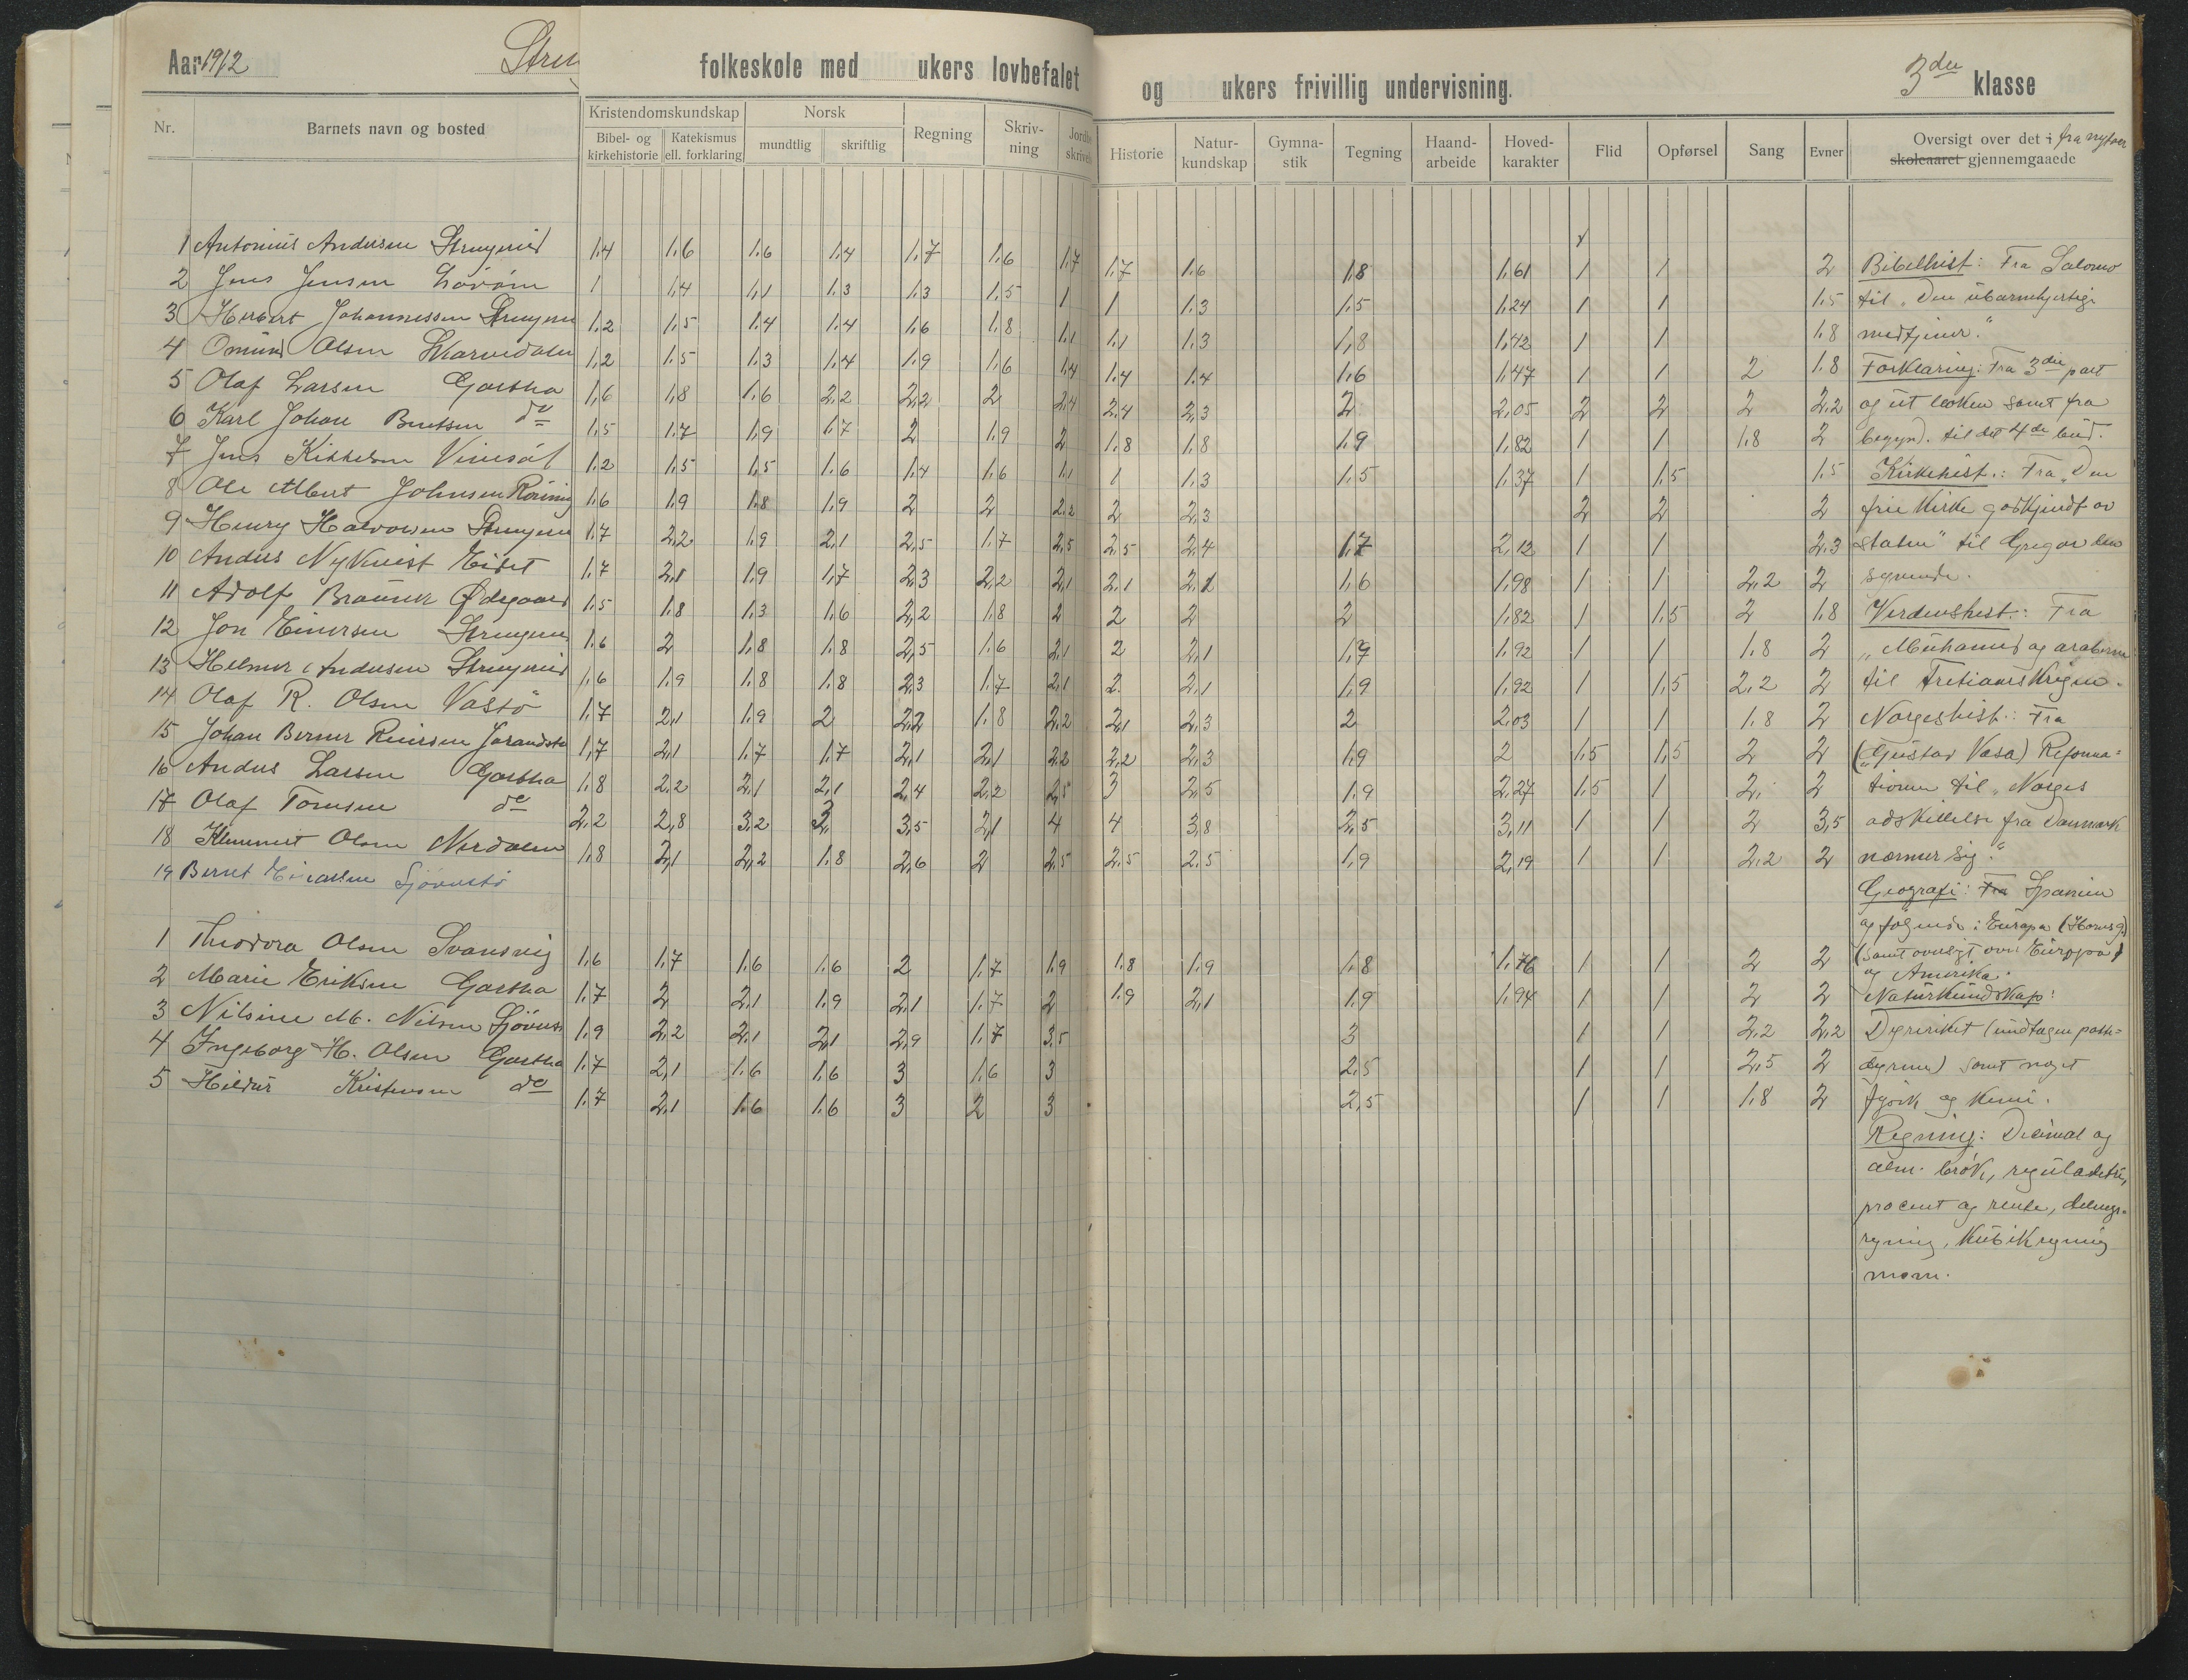 Aar 1912 folkeskole med ukers lovbefalet og ukers frivillig undervisning. 3die klasse
Nr. Barnets navn og bosted Kristendomskundskap Norsk Regning Skriv-ning Historie Natur-kundskap Gymna-stik Tegning Haand-arbeide Hoved-karakter Flid Opførsel Sang Evner Oversigt over det i fra nytaar
Bibel- og kirkehistorie Katekismus ell. forklaring mundtlig skriftlig skoleaaret gjennemgaaede
1 Antonius Andersen 1,4 1,6 1,6 1,4 1,7 1,6 1,7 1,7 1,6 1,8 1,61 1 1 2 Bibelhist: Fra Salomo
2 Jens Jensen 1 1,4 1,1 1,3 1,3 1,5 1 1 1,3 1,5 1,24 1 1 1,5 til "Den ubarmhjertige
3 Herbert Johannessen 1,2 1,5 1,4 1,4 1,6 1,8 1,1 1,1 1,3 1,8 1,42 1 1 1,8 medtjener."
4 Omund Olsen 1,2 1,5 1,3 1,4 1,9 1,6 1,4 1,4 1,4 1,6 1,47 1 1 2 1,8 Forklaring: Fra 3die part
5 Olaf Larsen Gartha 1,6 1,8 1,6 2,2 2,2 2 2,4 2,4 2,3 2 2,05 2 2 2 2,2 og ut boken samt fra
6 Karl Johan Berntsen do 1,5 1,7 1,9 1,7 2 1,9 2 1,8 1,8 1,9 1,82 1 1 1,8 2 begynd. til det 4de bud.
7 Jens Kittelsen 1,2 1,5 1,5 1,6 1,4 1,6 1,1 1 1,3 1,5 1,37 1 1,5 1,5 Kirkehist.: Fra "Den
8 Ole Albert Johnsen 1,6 1,9 1,8 1,9 2 2 2,2 2 2,3 2 2 2 frie kirke godkjendt av
9 Henry Halvorsen 1,7 2,2 1,9 2,1 2,5 1,7 2,5 2,5 2,4 1,7 2,12 1 1 2,3 staten" til Gregor den
10 Anders Nykvist Eidet 1,7 2,1 1,9 1,7 2,3 2,2 2,1 2,1 2,1 1,6 1,98 1 1 2,2 2 syvende.
11 Adolf Ødegaard 1,5 1,8 1,3 1,6 2,2 1,8 2 2 2 2 1,82 1 1,5 2 1,8 Verdenshist.: Fra
12 Jon Einersen 1,6 2 1,8 1,8 2,5 1,6 2,1 2 2,1 1,7 1,92 1 1 1,8 2 "Muhamed og araberne
13 Helmer Andersen 1,6 1,9 1,8 1,8 2,3 1,7 2,1 2 2,1 1,9 1,92 1 1,5 2,2 2 til Tretiaarskrigen.
14 Olaf R. Olsen Vastø 1,7 2,1 1,9 2 2,2 1,8 2,2 2,1 2,3 2 2,03 1 1 1,8 2 Norgeshist.: Fra
15 Johan Berner Reiersen 1,7 2,1 1,7 1,7 2,1 2,1 2,2 2,2 2,3 1,9 2 1,5 1,5 2 2 ("Gustav Vasa) Reforma=
16 Anders Larsen Gartha 1,8 2,2 2,1 2,1 2,4 2,2 2,5 3 2,5 1,9 2,27 1,5 1 2 2 tionen til "Norges
17 Olaf Tomsen do 2,2 2,8 3,2 3 3,5 2,1 4 4 3,8 2,5 3,11 1 1 2 3,5 adskillelse fra Danmark
18 Klemmet Olsen 1,8 2,1 2,2 1,8 2,6 2 2,5 2,5 2,5 1,9 2,19 1 1 2,2 2 nærmer sig."
19 Bernt Sjøvestø
Geografi: Fra Spanien
og følgende i Europa (Horns g.)
1 Theodora Olsen Svansvig 1,6 1,7 1,6 1,6 2 1,7 1,9 1,8 1,9 1,8 1,76 1 1 2 2 (samt oversigt over Europa)
og Amerika.
2 Marie Eriksen Gartha 1,7 2 2,1 1,9 2,1 1,7 2 1,9 2,1 1,9 1,94 1 1 2 2 Naturkundskap:
3 Nilsine M. Nilsen 1,9 2,2 2,1 2,1 2,9 1,7 3,5 3 1 1 2,2 2,2 Dyreriket (undtagen
4 Ingeborg H. Olsen Gartha 1,7 2,1 1,6 1,6 3 1,6 3 2,5 1 1 2,5 2 dyrene) samt noget
5 Hildur Kristensen do 1,7 2,1 1,6 1,6 3 2 3 2,5 1 1 1,8 2 fysik og kemi.
Regning: Decimal og
alm. brøk, reguladetri,
procent og rente, delings-
regning, kubikregning
m.m.